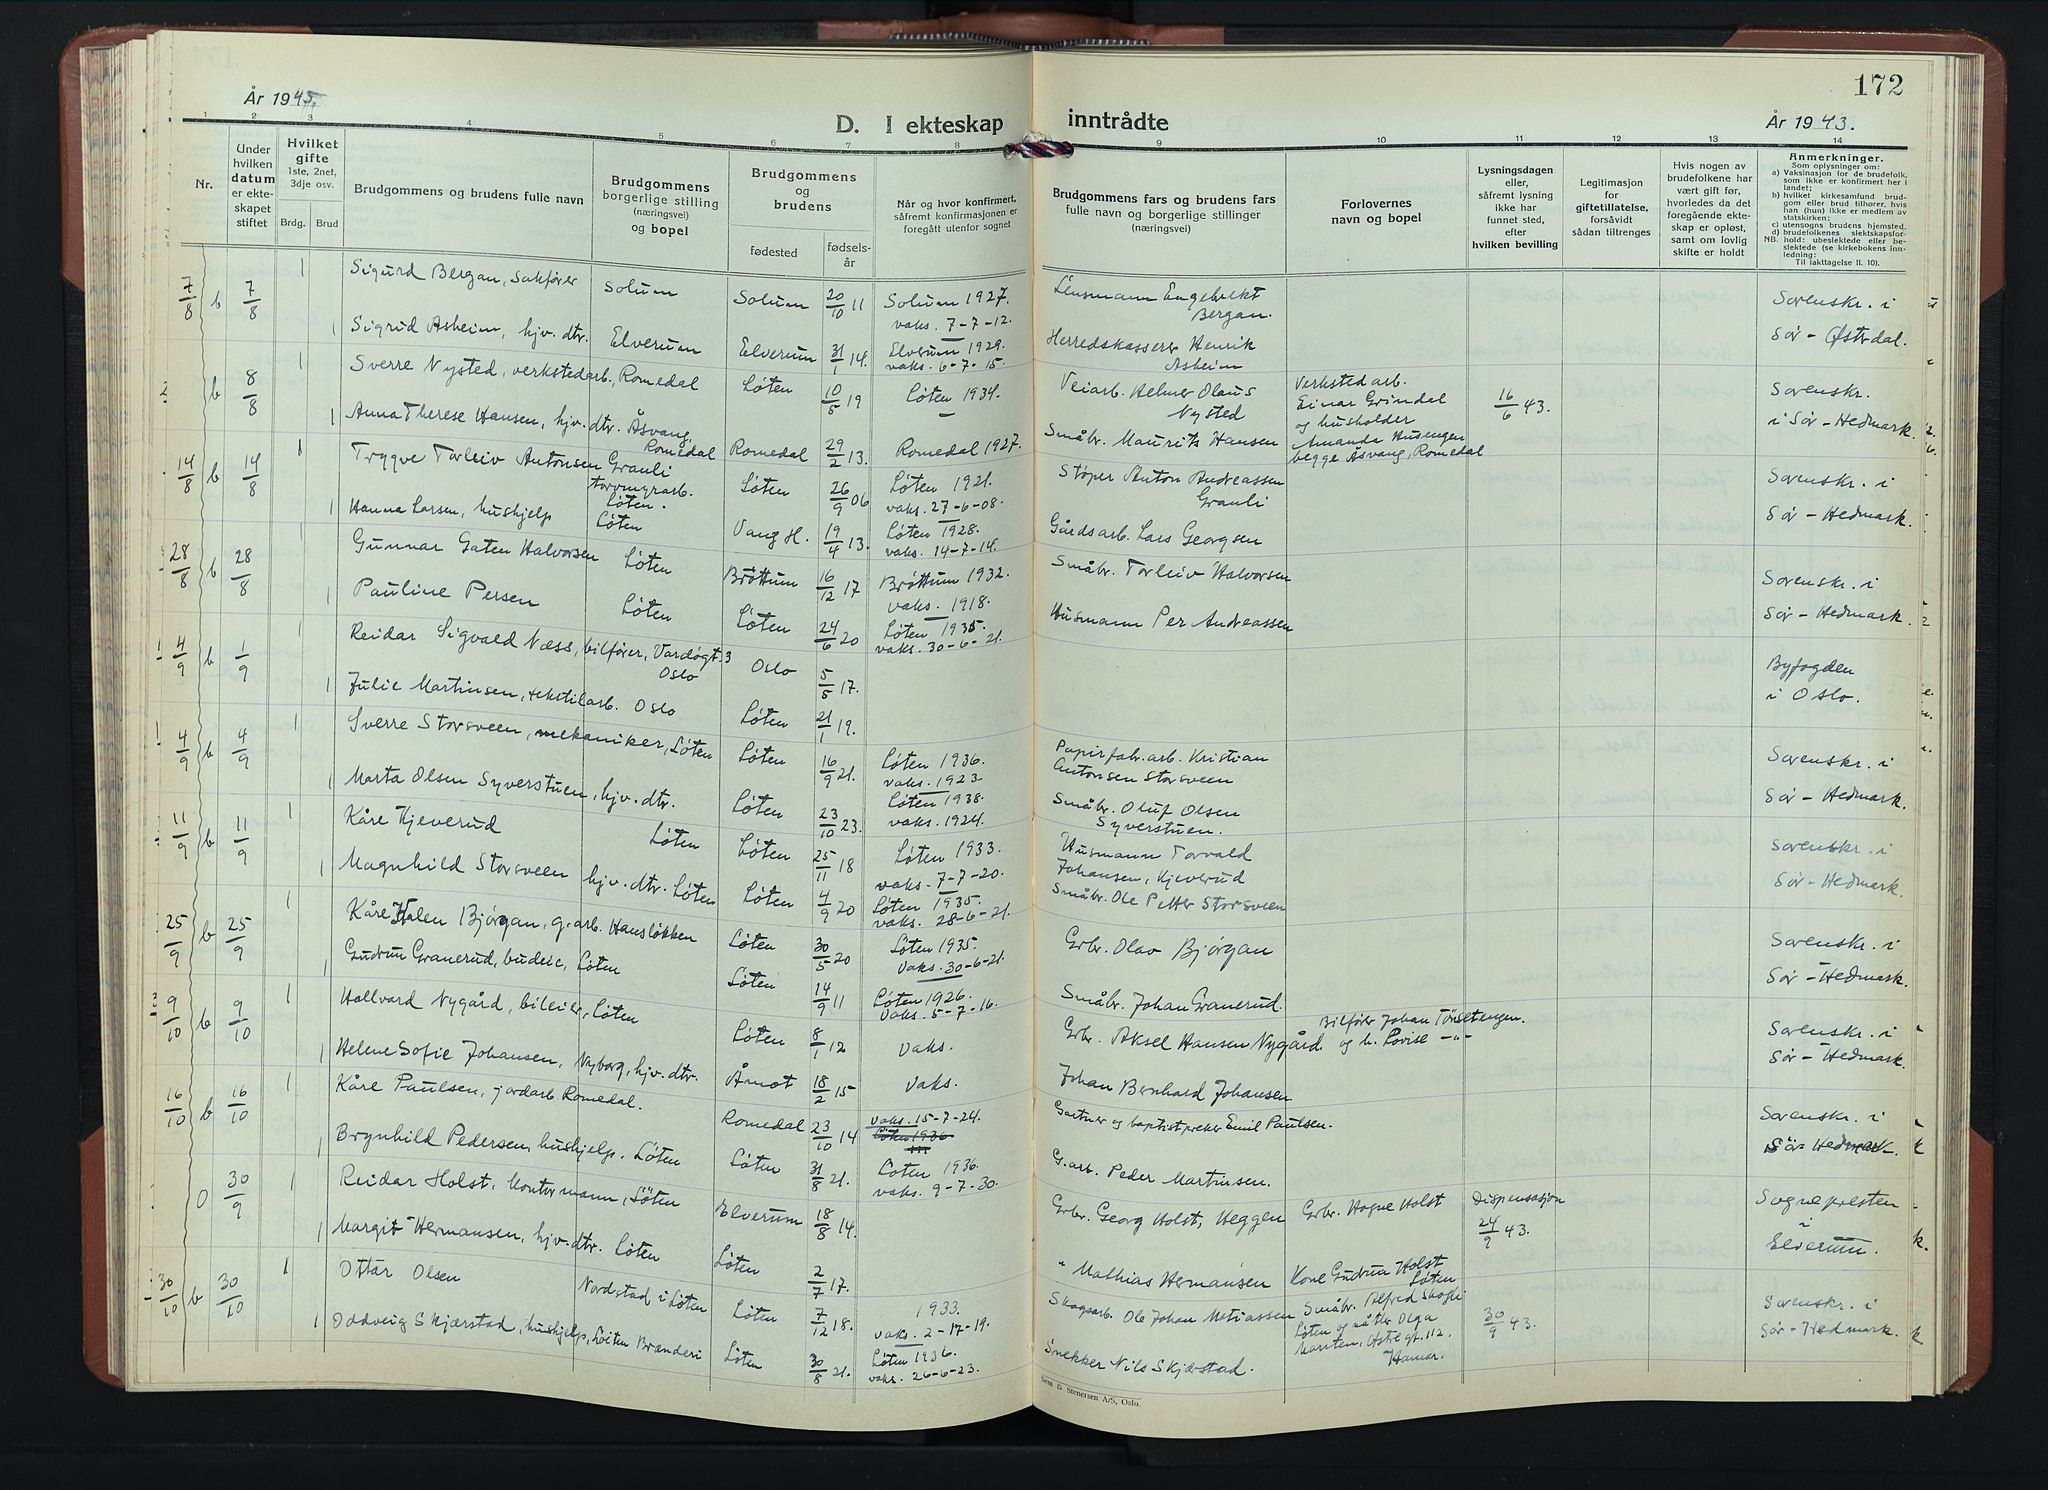 172
År 1943.
D. I ekteskap inntrådte
År 1943.
1 2 3 4 5 6 7 8 9 10 11 12 13 14
Nr.
Under hvilken datum er ekteskapet stiftet
Hvilket gifte 1ste, 2net, 3dje osv.
Brdg. Brud
Brudgommens og brudens fulle navn
Brudgommens borgerlige stilling (næringsvei) og bopel
Brudgommens og brudens
fødested
fødselsår
Når og hvor konfirmert, såfremt konfirmasjonen er foregått utenfor sognet
Brudgommens fars og brudens fars fulle navn og borgerlige stillinger (næringsvei)
Forlovernes navn og bopel
Lysningsdagen eller, såfremt lysning ikke har funnet sted, efter hvilken bevilling
Legitimasjon for giftetillatelse, forsåvidt sådan tiltrenges
Hvis nogen av brudefolkene har vært gift før, hvorledes da det foregående ekteskap er opløst, samt om lovlig skifte er holdt
Anmerkninger.
Som oplysninger om:
a) Vaksinasjon for de brudefolk, som ikke er konfirmert her i landet;
b) hvilket kirkesamfund brudgom eller brud tilhører, hvis han (hun) ikke er medlem av statskirken;
c) utensogns brudens hjemsted.
d) brudefolkenes slektskapsforhold: ubeslektede eller beslektede (se kirkebokens innledning:
NB.
Til iakttagelse II. 10).
7/8 b 7/8 1 Sigurd Bergan, sakfører Solum Solum 20/10 11 Solum 1927. vaks. 7-7-12. Lensmann Engebrekt Bergan. Sorenskr. i
1 Sigrid Asheim, hjv. dtr. Elverum Elverum 31/1 14. Elverum 1929. vaks. 6-7-15. Herredskasserer Henrik Asheim Sør-Østerdal.
b 8/8 1 Sverre Nysted, verkstedarb., Romedal Løten 10/5 19 Løten 1934. Veiarb. Helmer Olaus Nysted Verkstedarb. Einar Grindal og husholder 16/6 43. Sorenskr.
1 Anna Therese Hansen, hjv. dtr. Åsvang, Romedal Romedal 29/2 13. Romedal 1927. Småbr. Maurits Hansen Amanda Husengen begge Åsvang, Romedal i Sør-Hedmark.
14/8 b 14/8 1 Trygve Torleiv Antonsen Grauli Løten. Løten 26/9 06 Løten 1921. vaks. 27-6-08. Støper Anton Andreassen Grauli Sorenskr. i
1 Hanna Larsen, hushjelp Løten Vang H. 19/4 13. Løten 1928. vaks. 14-7-14. Gårdsarb. Lars Georgsen Sør-Hedmark.
28/8 b 28/8 1 Gunnar Gaten Halvorsen Løten Brøttum 16/12 17 Brøttum 1932. vaks. 1918. Småbr. Torleiv Halvorsen Sorenskr. i
1 Pauline Persen Løten Løten 24/6 20 Løten 1935. vaks. 30-6-21. Husmann Per Andreassen Sør-Hedmark.
4/9 b 1/9 1 Reidar Sigvald Næss, bilfører, Vardøgt. 3 Oslo Oslo 5/5 17. Byfogden
1 Julie Martinsen, tekstilarb. Oslo Løten 21/1 19. i Oslo.
4/9 b 4/9 1 Sverre Storsveen, mekaniker, Løten Løten 16/9 21. Løten 1936. vaks. 1923 Papirfabr.arb. Kristian Antonsen Storsveen Sorenskr. i
1 Marta Olsen Syverstuen, hjv. dtr. Løten 23/10 23. Løten 1938. vaks. 1924. Småbr. Oluf Olsen Syverstuen. Sør-Hedmark.
11/9 b 11/9 1 Kåre Kjeverud Løten Løten 25/11 18 Løten 1933. vaks. 7-7-20. Husmann Torvald Johansen, Kjeverud Sorenskr. i
1 Magnhild Storsveen hjv. dtr. Løten Løten 4/9 20 Løten 1935. vaks. 28-6-21. Småbr. Ole Petter Storsveen Sør-Hedmark.
25/9 b 25/9 1 Kåre Halen Bjørgan, g.arb. Hansløkken Løten 30/5 20 Løten 1935. Vaks. 30-6-21. Grbr. Olav Bjørgan Sorenskr. i
1 Gudrun Granerud, budeie, Løten Løten 14/9 11 Løten 1926. Vaks. 5-7-16. Småbr. Johan Granerud. Sør-Hedmark.
9/10 b 9/10 1 Hallvard Nygård, bileier, Løten Løten 8/1 12 Vaks. Grbr. Aksel Hansen Nygård. Bilfører Johan Tønsetengen. og h. Lovise -"- Sorenskr. i
1 Helene Sofie Johansen, Nyborg, hjv. dtr. Åmot 18/2 15 Vaks. Johan Bernhard Johansen Sør-Hedmark.
16/10 b 16/10 1 Kåre Paulsen, jordarb. Romedal. Romedal 23/10 14 vaks. 15-7-24. Løten 1936 Gartner og baptistpreker Emil Paulsen. Sorenskr. i
1 Brynhild Pedersen, hushjelp. Løten Løten 31/8 21. Løten 1936. vaks. 9-7-30. G.arb. Peder Martinsen. Sør-Hedmark.
O 30/9 1 Reidar Holst, kontormann, Löten Elverum 18/8 14. Grbr. Georg Holst, Heggen Grbr. Hogne Holst Dispensasjon 24/9 43. Sognepresten i
1 Margit Hermansen, hjv. dtr. Løten Løten 2/7 17. " Mathias Hermansen Kone Gudrun Holst Løten Elverum.
30/10 b 30/10 1 Ottar Olsen Nordstad i Løten Løten 7/12 18. 1933. vaks. 2-17-19. Skogsarb. Ole Johan Matiassen Småbr. Alfred Skogli Løten og Olga 30/9 43. Sorenskr. i
1 Oddveig Skjærstad, hushjelp, Løiten Brænderi Løten 30/8 21. Løten 1936. vaks. 26-6-23. Snekker Nils Skjærstad. Marsten, Østregt. 112, Hamar. Sør-Hedmark.
Sem & Stenersen A/S, Oslo.